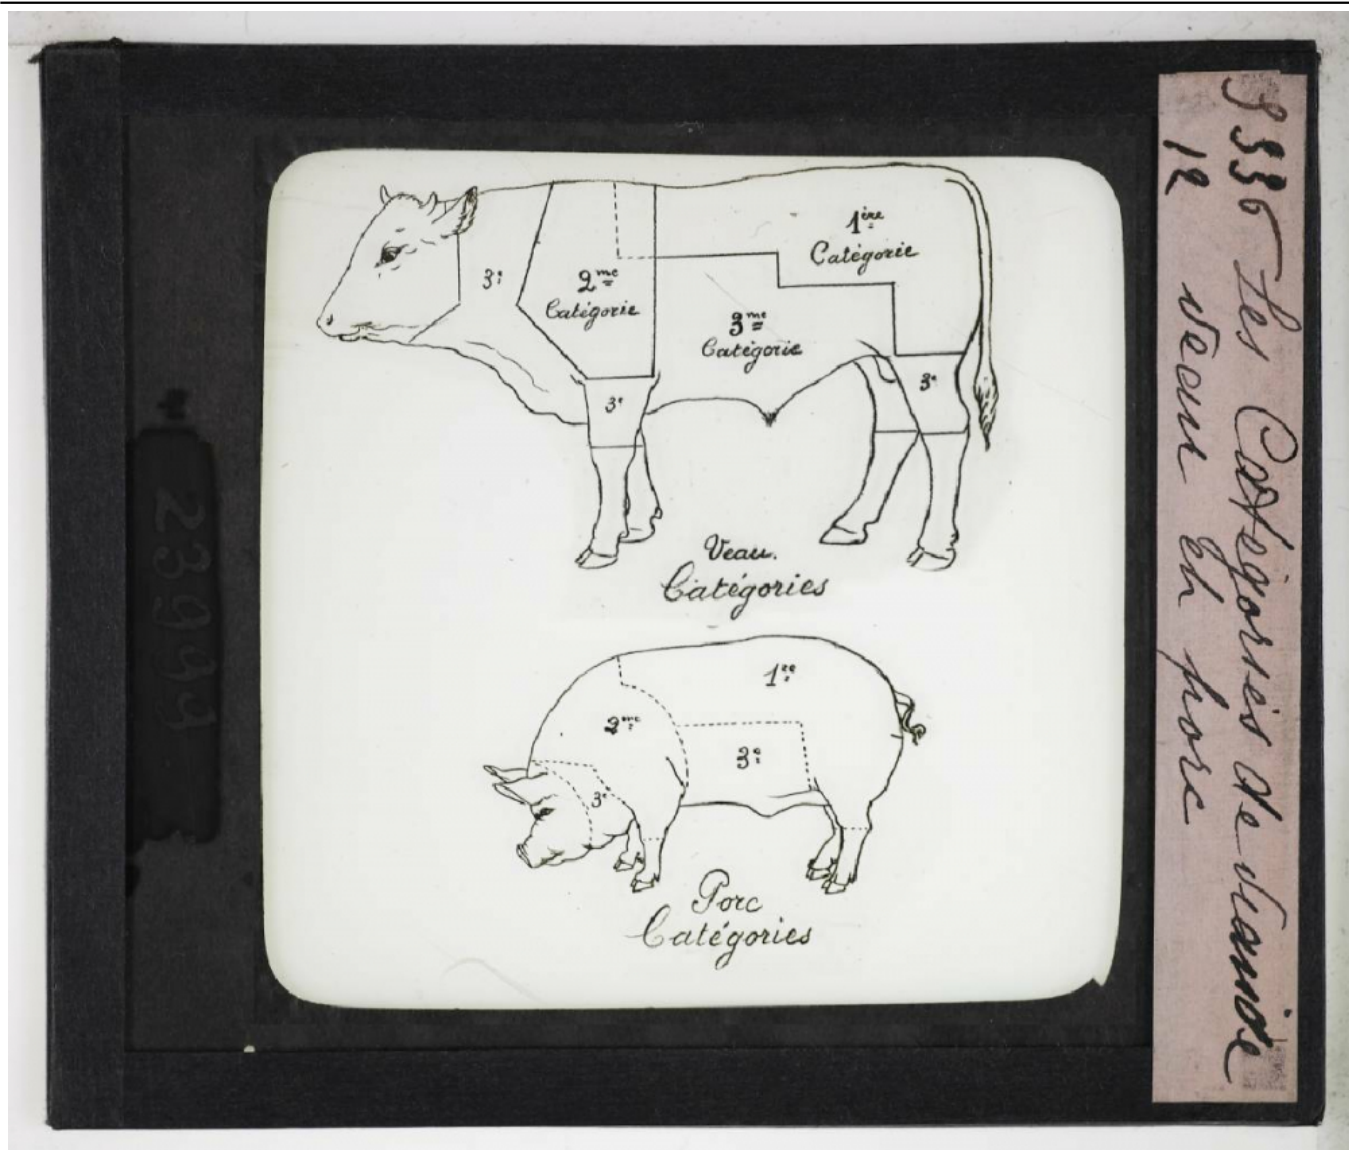 1ère
Catégorie
3e
2me
Catégorie
3me
Catégorie
3e
3e
Veau.
Catégories
1re
2me
3e
3e
Porc
Catégories
Les Catégories de viande
12 veau et porc
23999